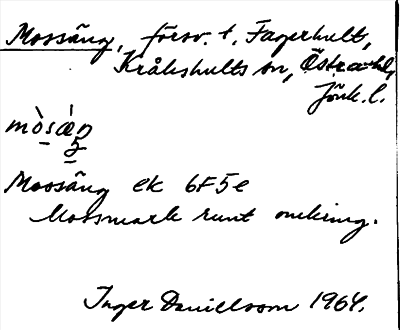 Mossäng, försv. t. Fagerhult,
Kråkshults sn, Östra hd,
Jönk. l.
mòsæ̀ŋ
5
Mossäng ek 6F5e
Mossmark runt omkring.
Inger Danielsson 1964.